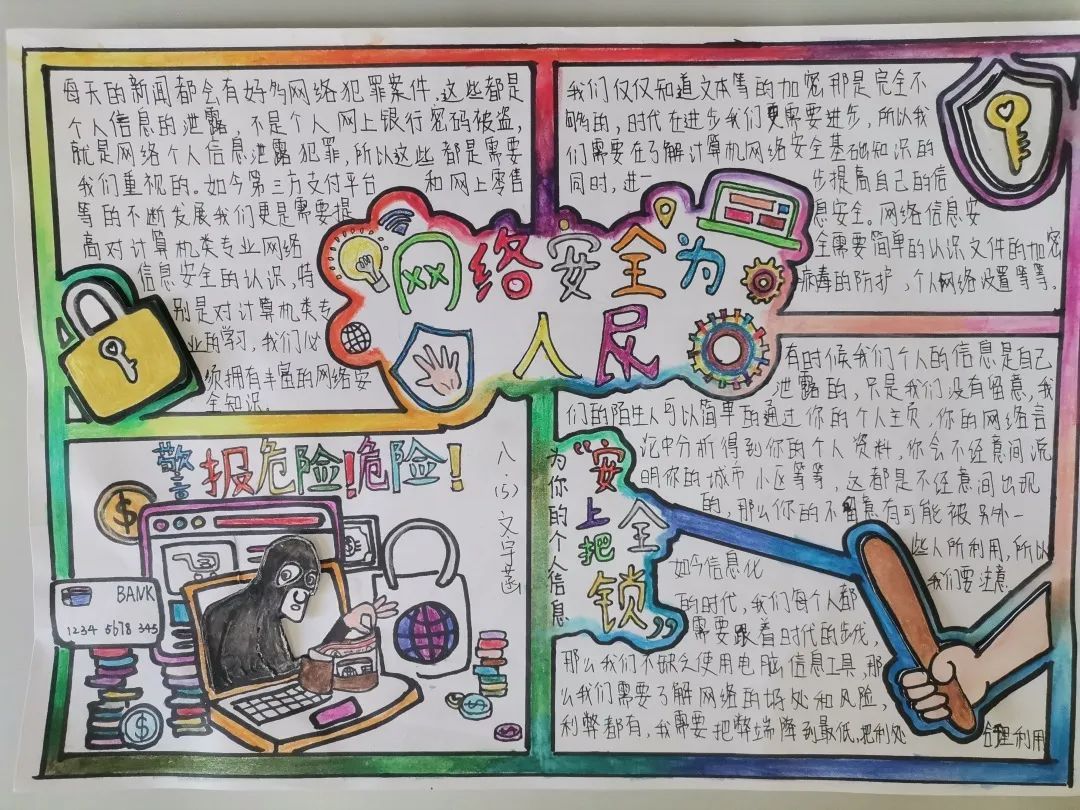 每天的新闻都会有好多网络犯罪案件,这些都是
个人信息的泄露,不是个人网上银行密码被盗,
就是网络个人信息泄露犯罪,所以这些都是需要
我们重视的.如今第三方支付平台 和网上零售
等的不断发展我们更是需要提
高对计算机类专业网络
信息安全的认识,特
别是对计算机类专
业的学习,我们必
须拥有丰富的网络安
全知识.
我们仅仅知道文本等的加密那是完全不
够的,时代在进步我们更需要进步,所以我
们需要在了解计算机网络安全基础知识的
同时,进一 步提高自己的信
息安全。网络信息安
全需要简单的认识文件的加密
病毒的防护,个人网络设置等等.
网络安全为
人民
警报危险!危险!
八.(5)文宇菡
BANK
1234 5678 345
为你的个人信息
“安全
上把
锁”
有时候我们个人的信息是自己
泄露的,只是我们没有留意,我
们的陌生人可以简单的通过你的个人主页,你的网络言
论中分析得到你的个人资料,你会不经意间说
明你的城市小区等等,这都是不经意间出现
的,那么你的不留意有可能被另外一
些人所利用,所以
我们要注意
如今信息化
的时代,我们每个人都
需要跟着时代的步伐,
那么我们不缺乏使用电脑信息工具,那
么我们需要了解网络的好处和风险,
利弊都有,我需要把弊端降到最低,把利处 合理利用